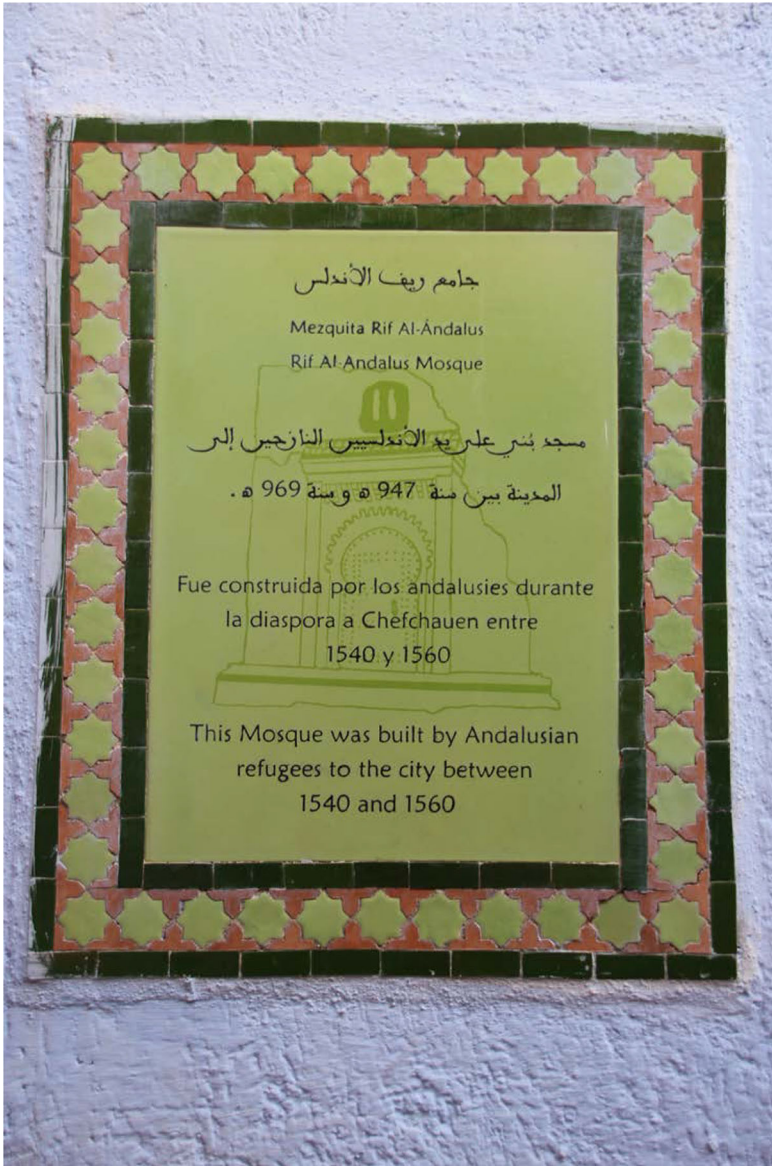 جامع ريف الأندلس
Mezquita Rif Al-Ándalus
Rif Al-Andalus Mosque
مسجد بُني على يد الأندلسيين النازحين إلى
المدينة بين سنة 947 ه و سنة 969 ه .
Fue construida por los andalusies durante
la diaspora a Chefchauen entre
1540 y 1560
This Mosque was built by Andalusian
refugees to the city between
1540 and 1560